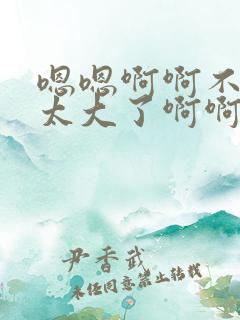 嗯嗯啊啊不
太大了啊啊
尹香武
未经同意禁止转载